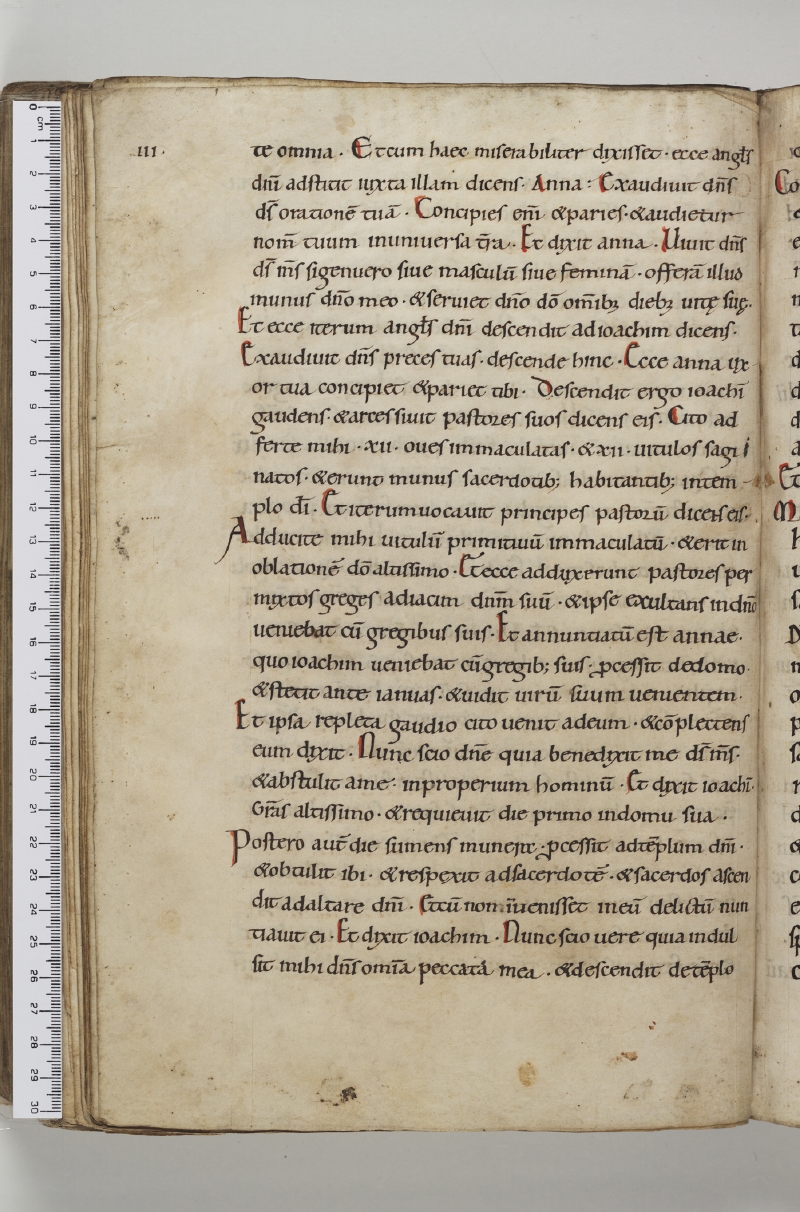 .III.
te omnia · Et cum haec miserabiliter dixisset · ecce angłs
dnī adstitit iuxta illam dicens · Anna : Exaudiuit dn̄s
ds̄ orationē tuā · Concipies em̄ & paries · & audietur
nom̄ tuum inuniuersa tr̄a · Et dixit anna · Uiuit dn̄s
ds̄ ms̄ sigenuero siue masculū siue feminā · offerā illud
munus dn̄o meo · & seruiet dn̄o dō om̄ib; dieb; uitę suę ·
Et ecce iterum angłs dnī descendit adioachim dicens ·
Exaudiuit dn̄s preces tuas · descende hinc · Ecce anna ux
or tua concipiet & pariet tibi · Descendit ergo ioachī
gaudens · & arcessiuit pastores suos dicens eis · Cito ad
ferte mihi · xii · oues immaculatas · & xii · uitulos sagi
natos · & erunt munus sacerdotib; habitantib; intem-
plo dī · Et iterum uocauit principes pastorū dicens eis ·
Adducite mihi uitulū primitiuū immaculatū · & erit in
oblationē dō altissimo · Et ecce adduxerunt pastores per
mixtos greges adiacim dnm̄ suū · & ipse exultans indn̄o
ueniebat cū gregibus suis · Et annuntiatū est annae ·
quo ioachim ueniebat cū gregib; suis · ꝓcessit dedomo ·
& stetit ante ianuas · & uidit uirū suum uenientem ·
Et ipsa repleta gaudio cito uenit adeum · & cōplectens
eum dixit · Nunc scio dn̄e quia benedixit me ds̄ ms̄ ·
& abstulit ame : inproperium hominū · Et dixit ioachī ·
Grās altissimo · & requieuit die primo indomu sua ·
Postero aut̄ die sumens munera · ꝓcessit adtēplum dnī ·
& obtulit ibi · & respexit adsacerdotē · & sacerdos ascen
dit adaltare dnī · Et cū non inuenisset meū delictū nun
tiauit ei · Et dixit ioachim · Nunc scio uere quia indul
sit mihi dn̄s omīa peccata mea · & descendit detēplo